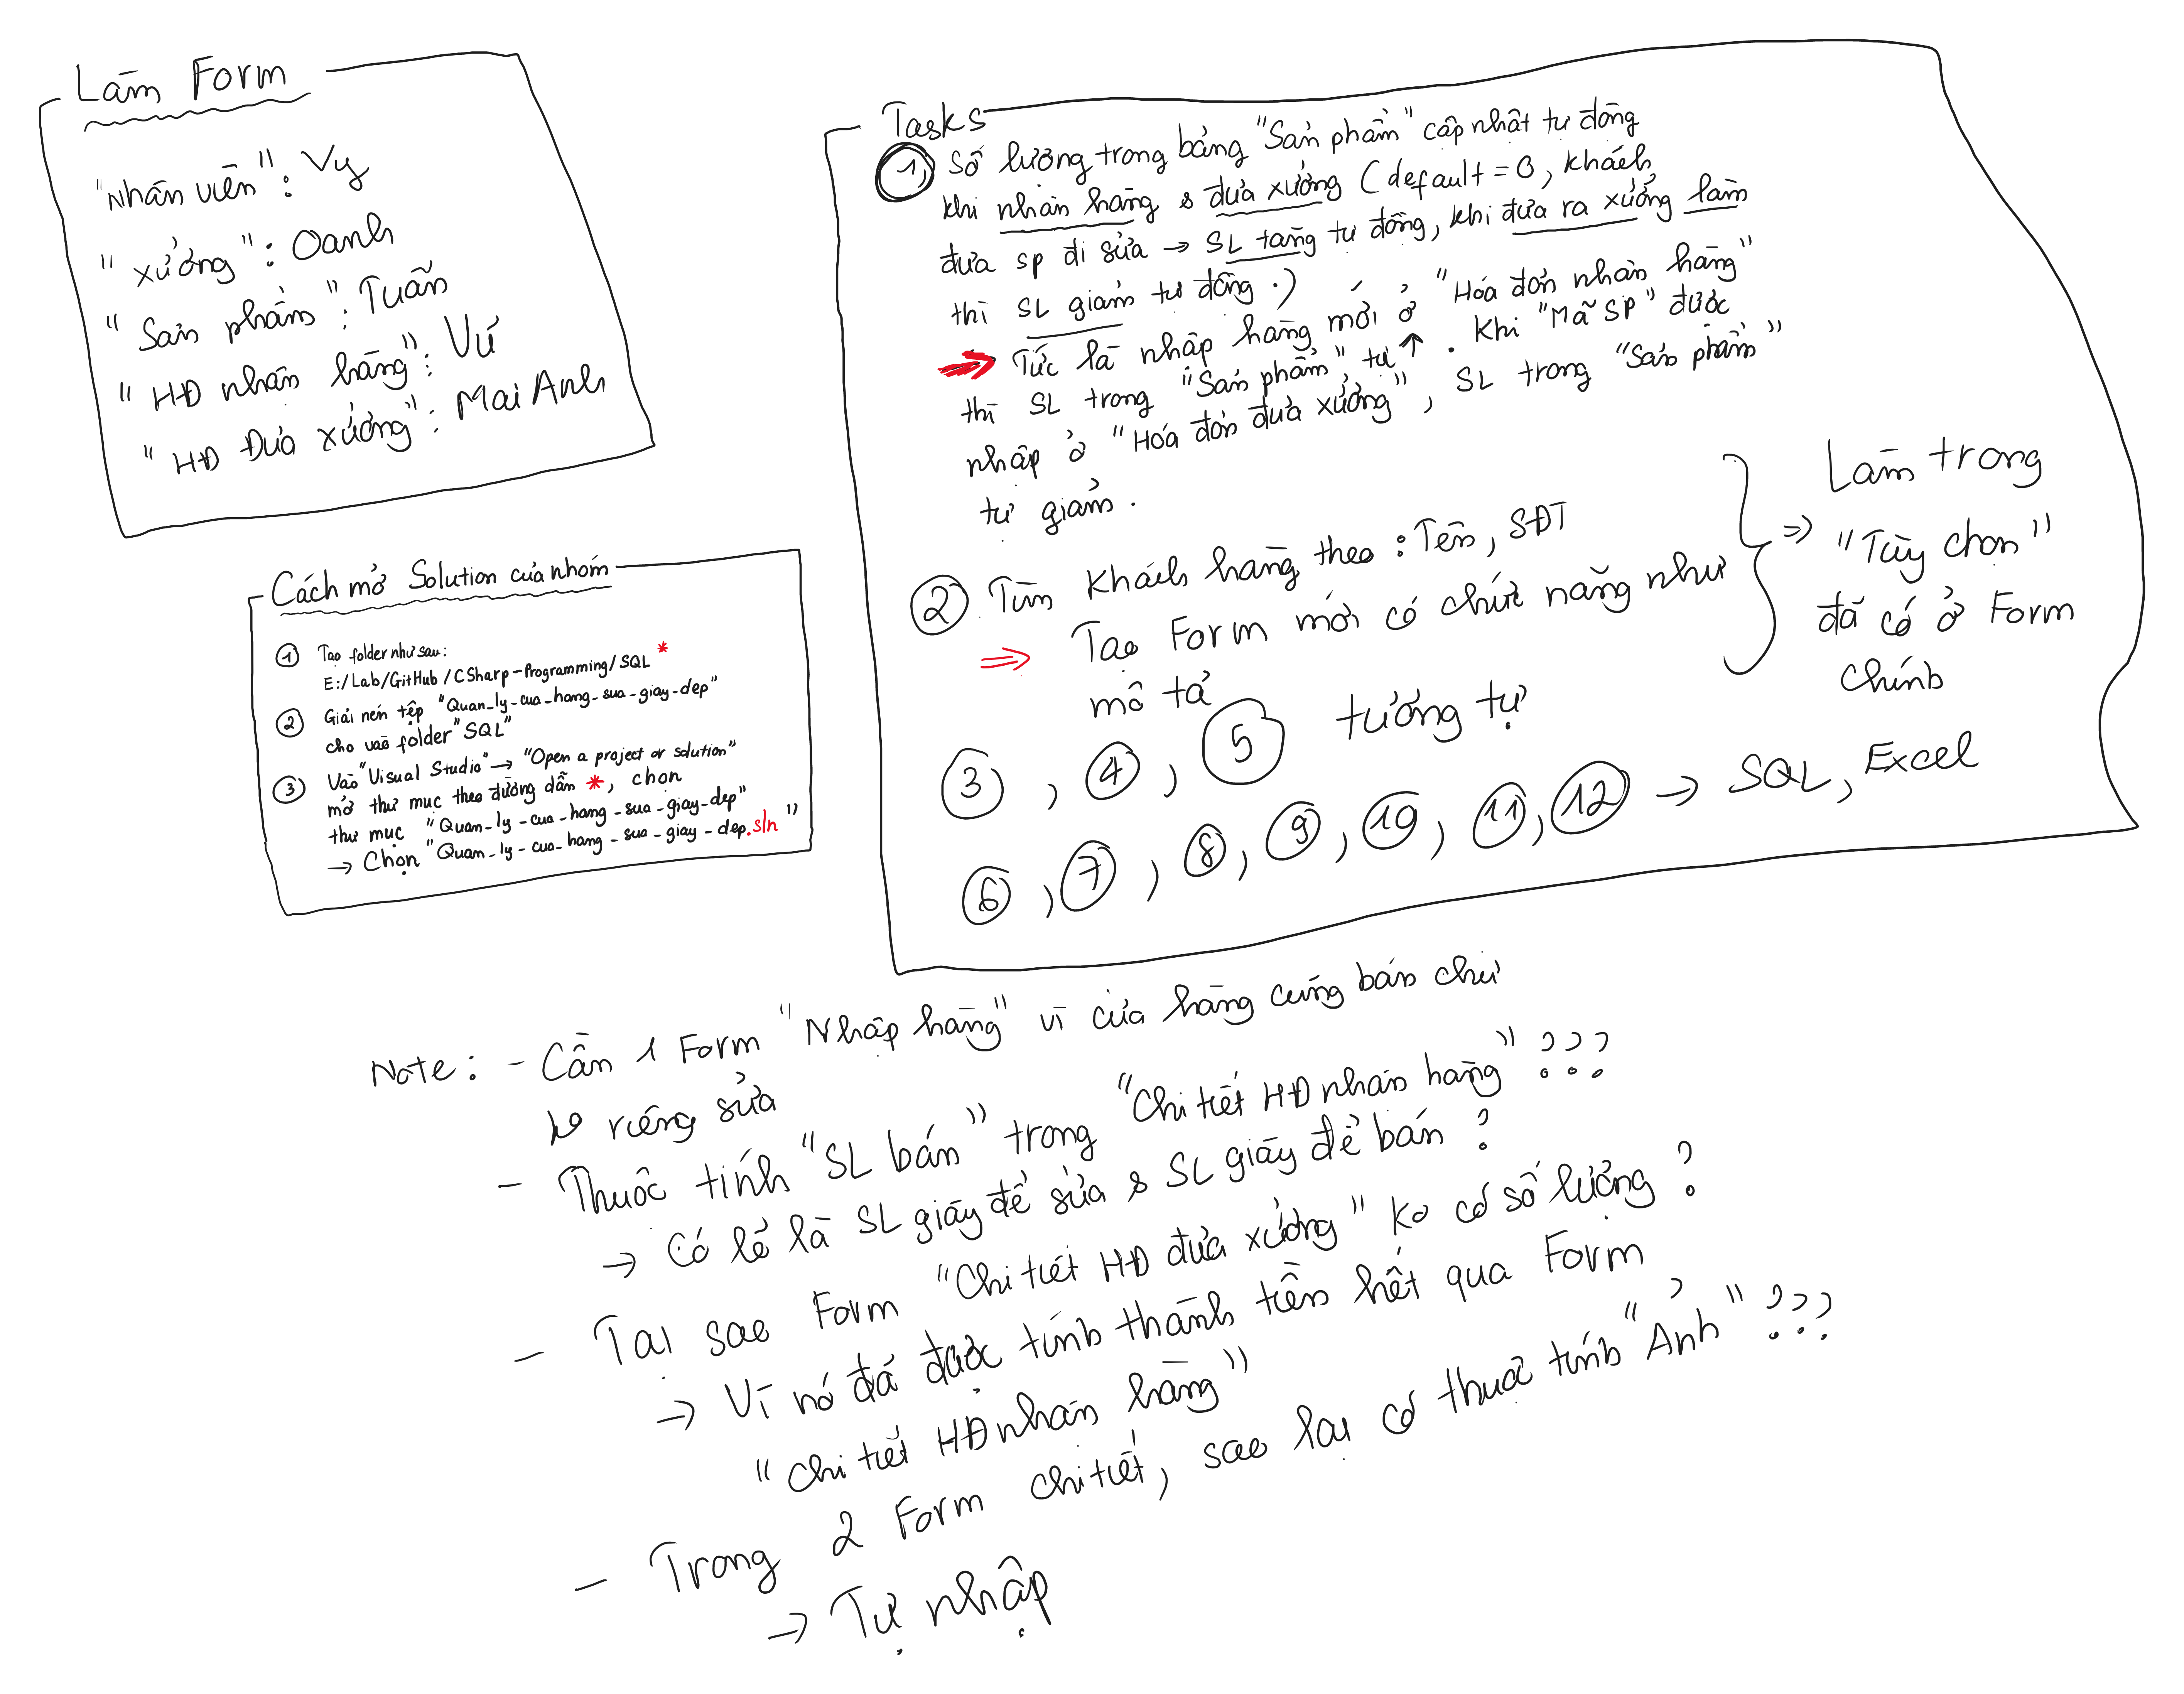 Làm Form
"Nhân viên": Vy
"Xưởng": Oanh
"Sản phẩm": Tuấn
"HĐ nhận hàng": Vú
"HĐ Đưa xưởng": Mai Anh
Cách mở Solution của nhóm
① Tạo folder như sau:
E:/Lab/GitHub/CSharp-Programming/SQL *
② Giải nén tệp "Quan_ly-cua_hang_sua-giay-dep"
cho vào folder "SQL"
③ Vào "Visual Studio" → "Open a project or solution"
mở thư mục theo đường dẫn *, chọn
thư mục "Quan-ly-cua-hang-sua-giay-dep"
→ Chọn "Quan-ly-cua-hang-sua-giay-dep.sln"
Tasks
① Số lượng trong bảng "Sản phẩm" cập nhật tự động
khi nhận hàng & đưa xưởng (default = 0, khách
đưa sp đi sửa → SL tăng tự động, khi đưa ra xưởng làm
thì SL giảm tự động.)
⇒ Tức là nhập hàng mới ở "Hóa đơn nhận hàng"
thì SL trong "Sản phẩm" tự ↑. Khi "Mã SP" được
nhập ở "Hóa đơn đưa xưởng", SL trong "Sản phẩm"
tự giảm.
② Tìm Khách hàng theo: Tên, SĐT
⇒ Tạo Form mới có chức năng như
mô tả
③, ④, ⑤ tương tự
⇒ Làm trong
"Tùy chọn"
đã có ở Form
chính
⑥, ⑦, ⑧, ⑨, ⑩, ⑪, ⑫ → SQL, Excel
Note: - Cần 1 Form "Nhập hàng" vì cửa hàng cũng bán chứ
ko riêng sửa
- Thuộc tính "SL bán" trong "Chi tiết HĐ nhận hàng" ???
→ Có lẽ là SL giày để sửa & SL giày để bán?
- Tại sao Form "Chi tiết HĐ đưa xưởng" ko có số lượng?
→ Vì nó đã được tính thành tiền hết qua Form
"Chi tiết HĐ nhận hàng"
- Trong 2 Form chi tiết, sao lại có thuộc tính "Ảnh" ???
→ Tự nhập